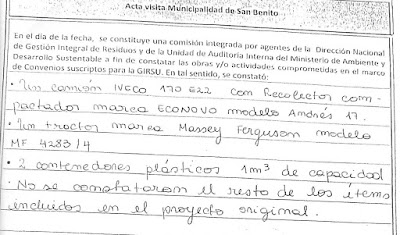 Acta visita Municipalidad de San Benito
En el día de la fecha, se constituye una comisión integrada por agentes de la Dirección Nacional
de Gestión Integral de Residuos y de la Unidad de Auditoría Interna del Ministerio de Ambiente y
Desarrollo Sustentable a fin de constatar las obras y/o actividades comprometidas en el marco
de Convenios suscriptos para la GIRSU. En tal sentido, se constató:
• Un camión IVECO 170 E22 con Recolector com-
pactador marca ECONOVO modelo Andrés 17.
• Un tractor marca Massey Ferguson modelo
MF 4283/4
• 2 contenedores plásticos 1m³ de capacidad
• No se constataron el resto de los ítems
incluidos en el proyecto original.